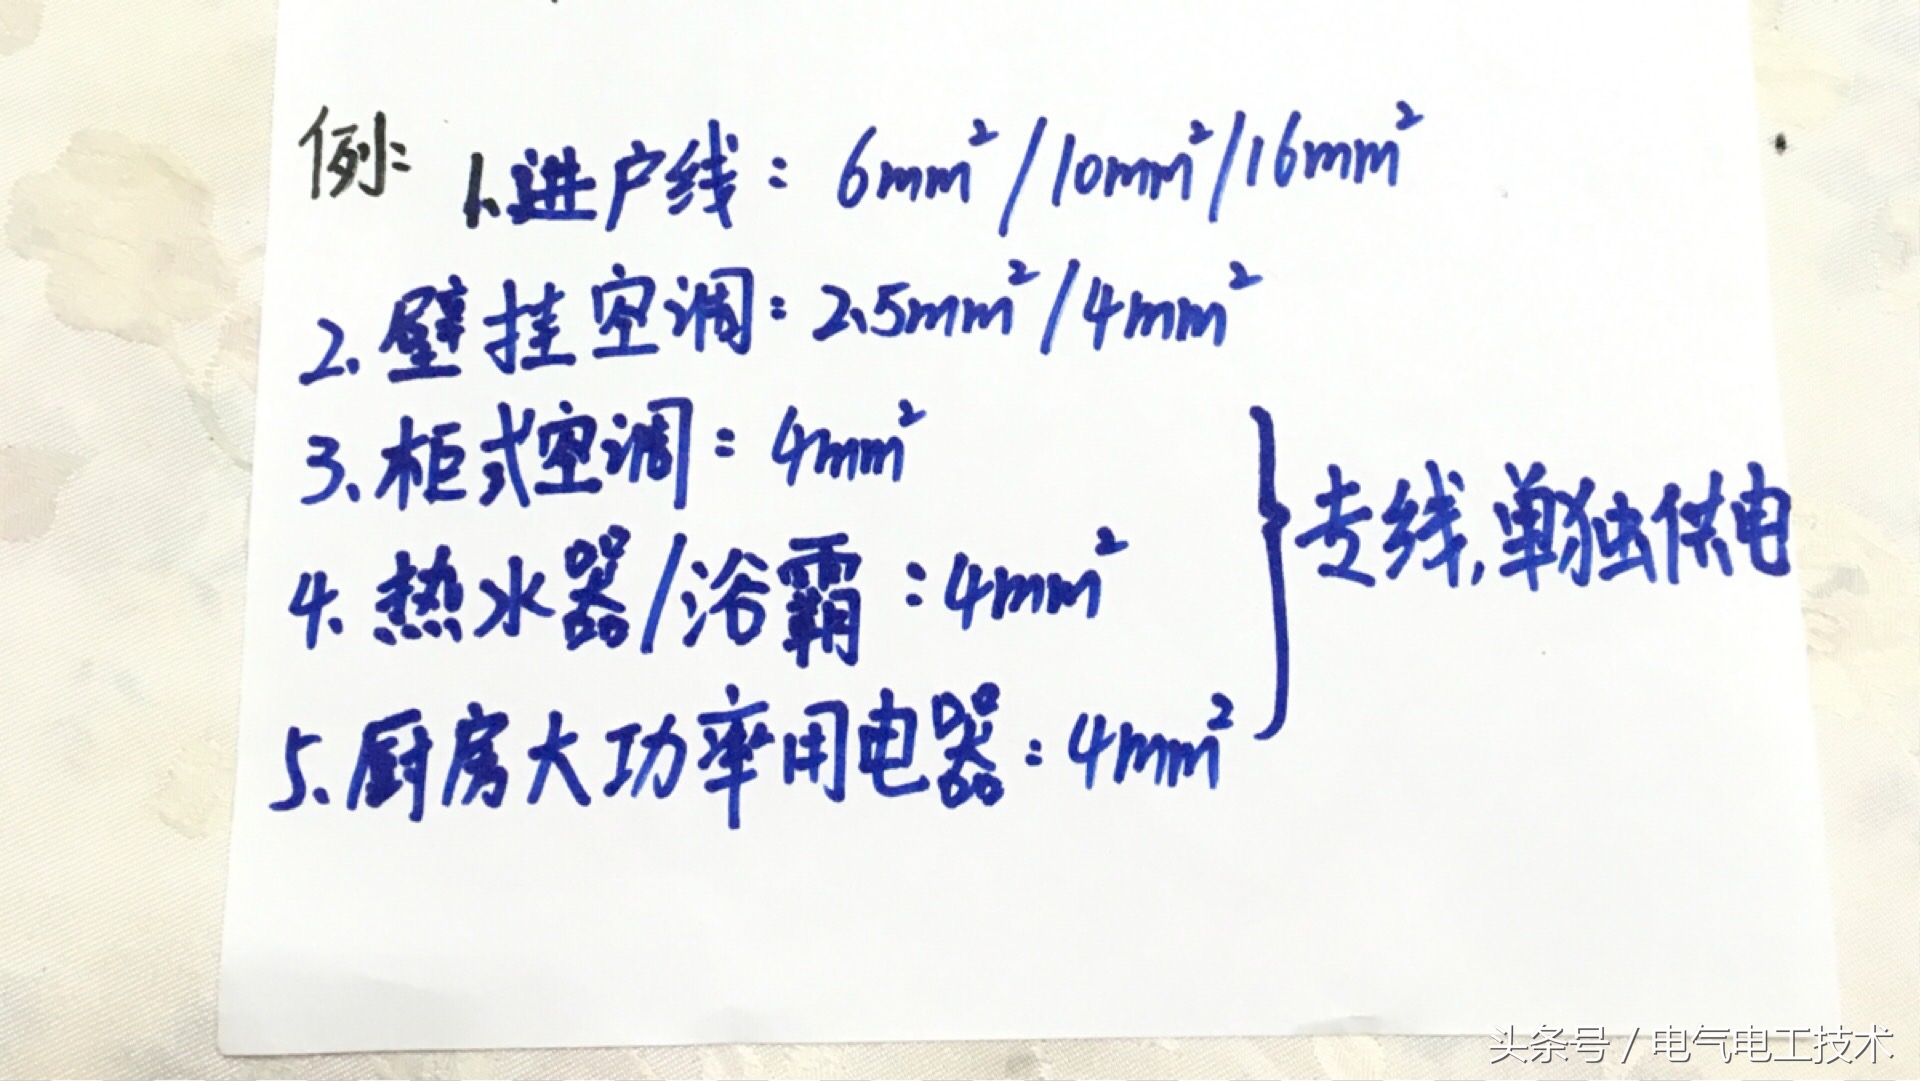 例: 1.进户线: 6mm²/10mm²/16mm²
2.壁挂空调: 2.5mm²/4mm²
3.柜式空调: 4mm²
4.热水器/浴霸: 4mm²
5.厨房大功率用电器: 4mm²
专线,单独供电
头条号 / 电气电工技术